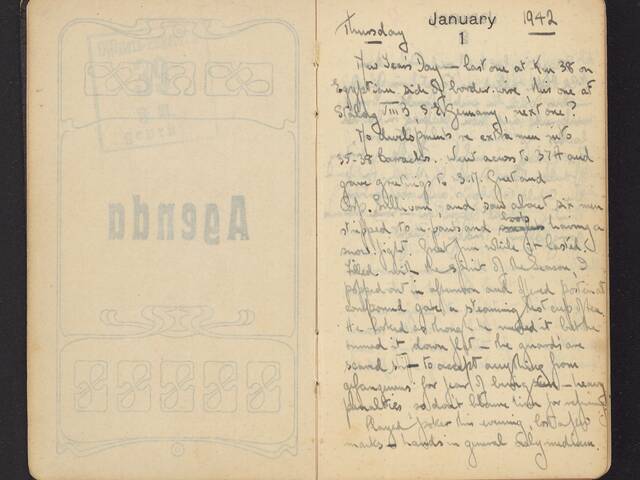 Agenda
January 1942
Thursday 1
New Years Day – last one at Km 38 on
Egyptian side of border wire, this one at
Stalag VIII B S.E. Germany, next one?
No developments re extra men into
35-38 Barracks. Went across to 37A and
gave greetings to S.M. and
Corp. Sullivan, and saw about six men
stripped to pants and boots having a
snow fight. Great fun while it lasted.
Filled with the spirit of the season, I
popped out in afternoon and offered posten at
compound gate a steaming hot cup of tea.
He looked as though he needed it but he
turned it down flat – the guards are
scared stiff to accept anything from
gefangeners for fear of being seen – heavy
penalties so don't blame him for refusing
Played poker this evening, lost a few
marks – hands in general only medium.